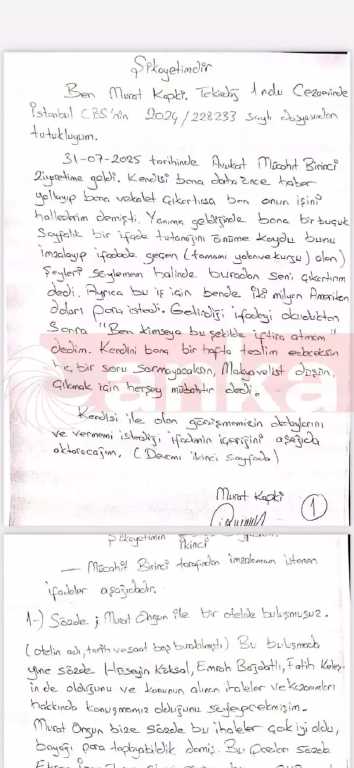 Şikayetimdir
Ben Murat Kapki. Tekirdağ 1 nolu Cezaevinde
İstanbul CBS'nin 2024/228233 sayılı dosyasından
tutukluyum.
31-07-2025 tarihinde Avukat Mücahit Birinci
ziyaretime geldi. Kendisi bana daha önce haber
yollayıp bana vekalet çıkartırsa ben onun işini
hallederim demişti. Yanıma geldiğinde bana bir buçuk
sayfalık bir ifade tutanağını önüme koydu bunu
imzalayıp ifadede geçen (tamamı yalan ve kurgu) olan)
şeyleri söylemem halinde buradan seni çıkartırım
dedi. Ayrıca bu iş için benden milyon Amerikan
doları para istedi. Getirdiği ifadeyi okuduktan
sonra "Ben kimseye bu şekilde iftira atmam"
dedim. Kendini bana bir hafta teslim edeceksin
hiç bir soru sormayacaksın, Makyavelist düşün,
Çıkmak için herşey mübahtır dedi.
Kendisi ile olan görüşmemizin detaylarını
ve vermemi istediği ifadenin içeriğini aşağıda
aktaracağım. (Devamı ikinci sayfada)
Murat Kapki
1
anka
Şikayetimin İkinci
— Mücahit Birinci tarafından imzalamam istenen
ifadeler aşağıdadır.
1-) Sözde ; Murat Ongun ile bir otelde buluşmuşuz.
(otelin adı, tarih ve saat boş bırakılmıştı) Bu buluşmada
yine sözde Hüseyin Köksal, Emrah Bağdatlı, Fatih Keleş
in de olduğunu ve konunun alınan ihaleler ve kazanımları
hakkında konuşmamız olduğunu söyleyecekmişim.
Murat Ongun bize sözde bu ihaleler çok iyi oldu,
bayağı para toplayabildik demiş. Bu paralar sözde